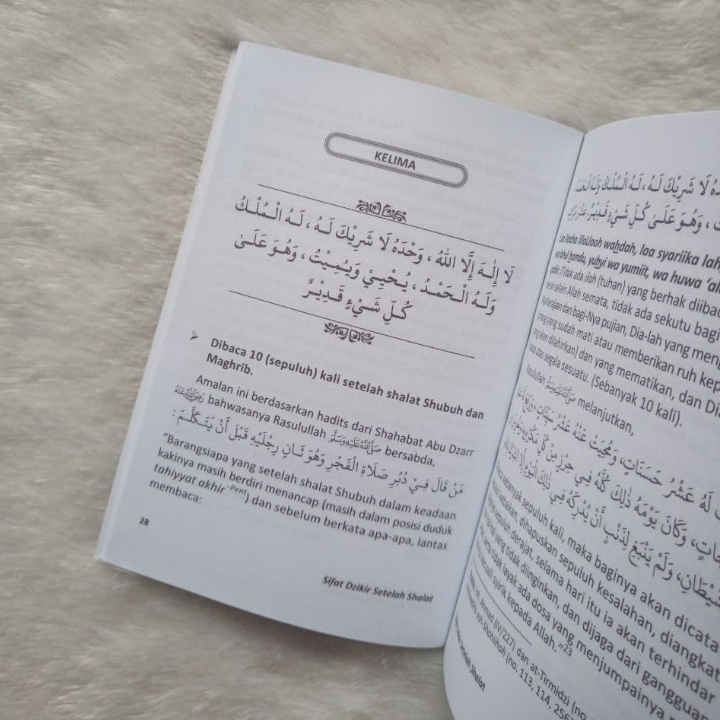 KELIMA
لَا إِلٰهَ إِلَّا اللهُ ، وَحْدَهُ لَا شَرِيْكَ لَهُ ، لَهُ الْمُلْكُ
وَلَهُ الْحَمْدُ ، يُحْيِيْ وَيُمِيْتُ ، وَهُوَ عَلَىٰ
كُلِّ شَيْءٍ قَدِيْرٌ
➢ Dibaca 10 (sepuluh) kali setelah shalat Shubuh dan
Maghrib.
Amalan ini berdasarkan hadits dari Shahabat Abu Dzarr
bahwasanya Rasulullah ﷺ bersabda,
مَنْ قَالَ فِيْ دُبُرِ صَلَاةِ الْفَجْرِ وَهُوَ ثَانٍ رِجْلَيْهِ قَبْلَ أَنْ يَتَكَلَّمَ :
"Barangsiapa yang setelah shalat Shubuh dalam keadaan
kakinya masih berdiri menancap (masih dalam posisi duduk
tahiyyat akhir-Pent) dan sebelum berkata apa-apa, lantas
membaca:
28
Sifat Dzikir Setelah Shalat
لَا شَرِيْكَ لَهُ ، لَهُ الْمُلْكُ وَلَهُ
، وَهُوَ عَلَىٰ كُلِّ شَيْءٍ قَدِيْرٌ
wahdah, laa syariika lah
yuhyi wa yumiit, wa huwa 'al
(Tidak ada ilah (tuhan) yang berhak diibac
selain Allah semata, tidak ada sekutu bagi
dan bagi-Nya pujian, Dia-lah yang meng
yang sudah mati atau memberikan ruh kep
dilahirkan) dan yang mematikan, dan Di
atas segala sesuatu. (Sebanyak 10 kali).
Rasulullah ﷺ melanjutkan,
لَهُ عَشْرُ حَسَنَاتٍ، وَمُحِيَتْ عَنْهُ عَشْرُ سَيِّئَاتٍ
وَكَانَ يَوْمَهُ ذٰلِكَ كُلَّهُ فِيْ حِرْزٍ مِنْ كُلِّ
وَلَمْ يَنْبَغِ لِذَنْبٍ أَنْ يُدْرِكَهُ فِيْ ذٰلِكَ الْيَوْمِ
sepuluh kali, maka baginya akan dicata
dihapuskan sepuluh kesalahan, diangkat
sepuluh derajat, selama hari itu ia akan terhindar
yang tidak diinginkan, dan dijaga dari ganggua
tidak ada dosa yang menjumpainya
syirik kepada Allah."23
(IV/227) dan at-Tirmidzi (no
(no. 113, 114,
Shalat